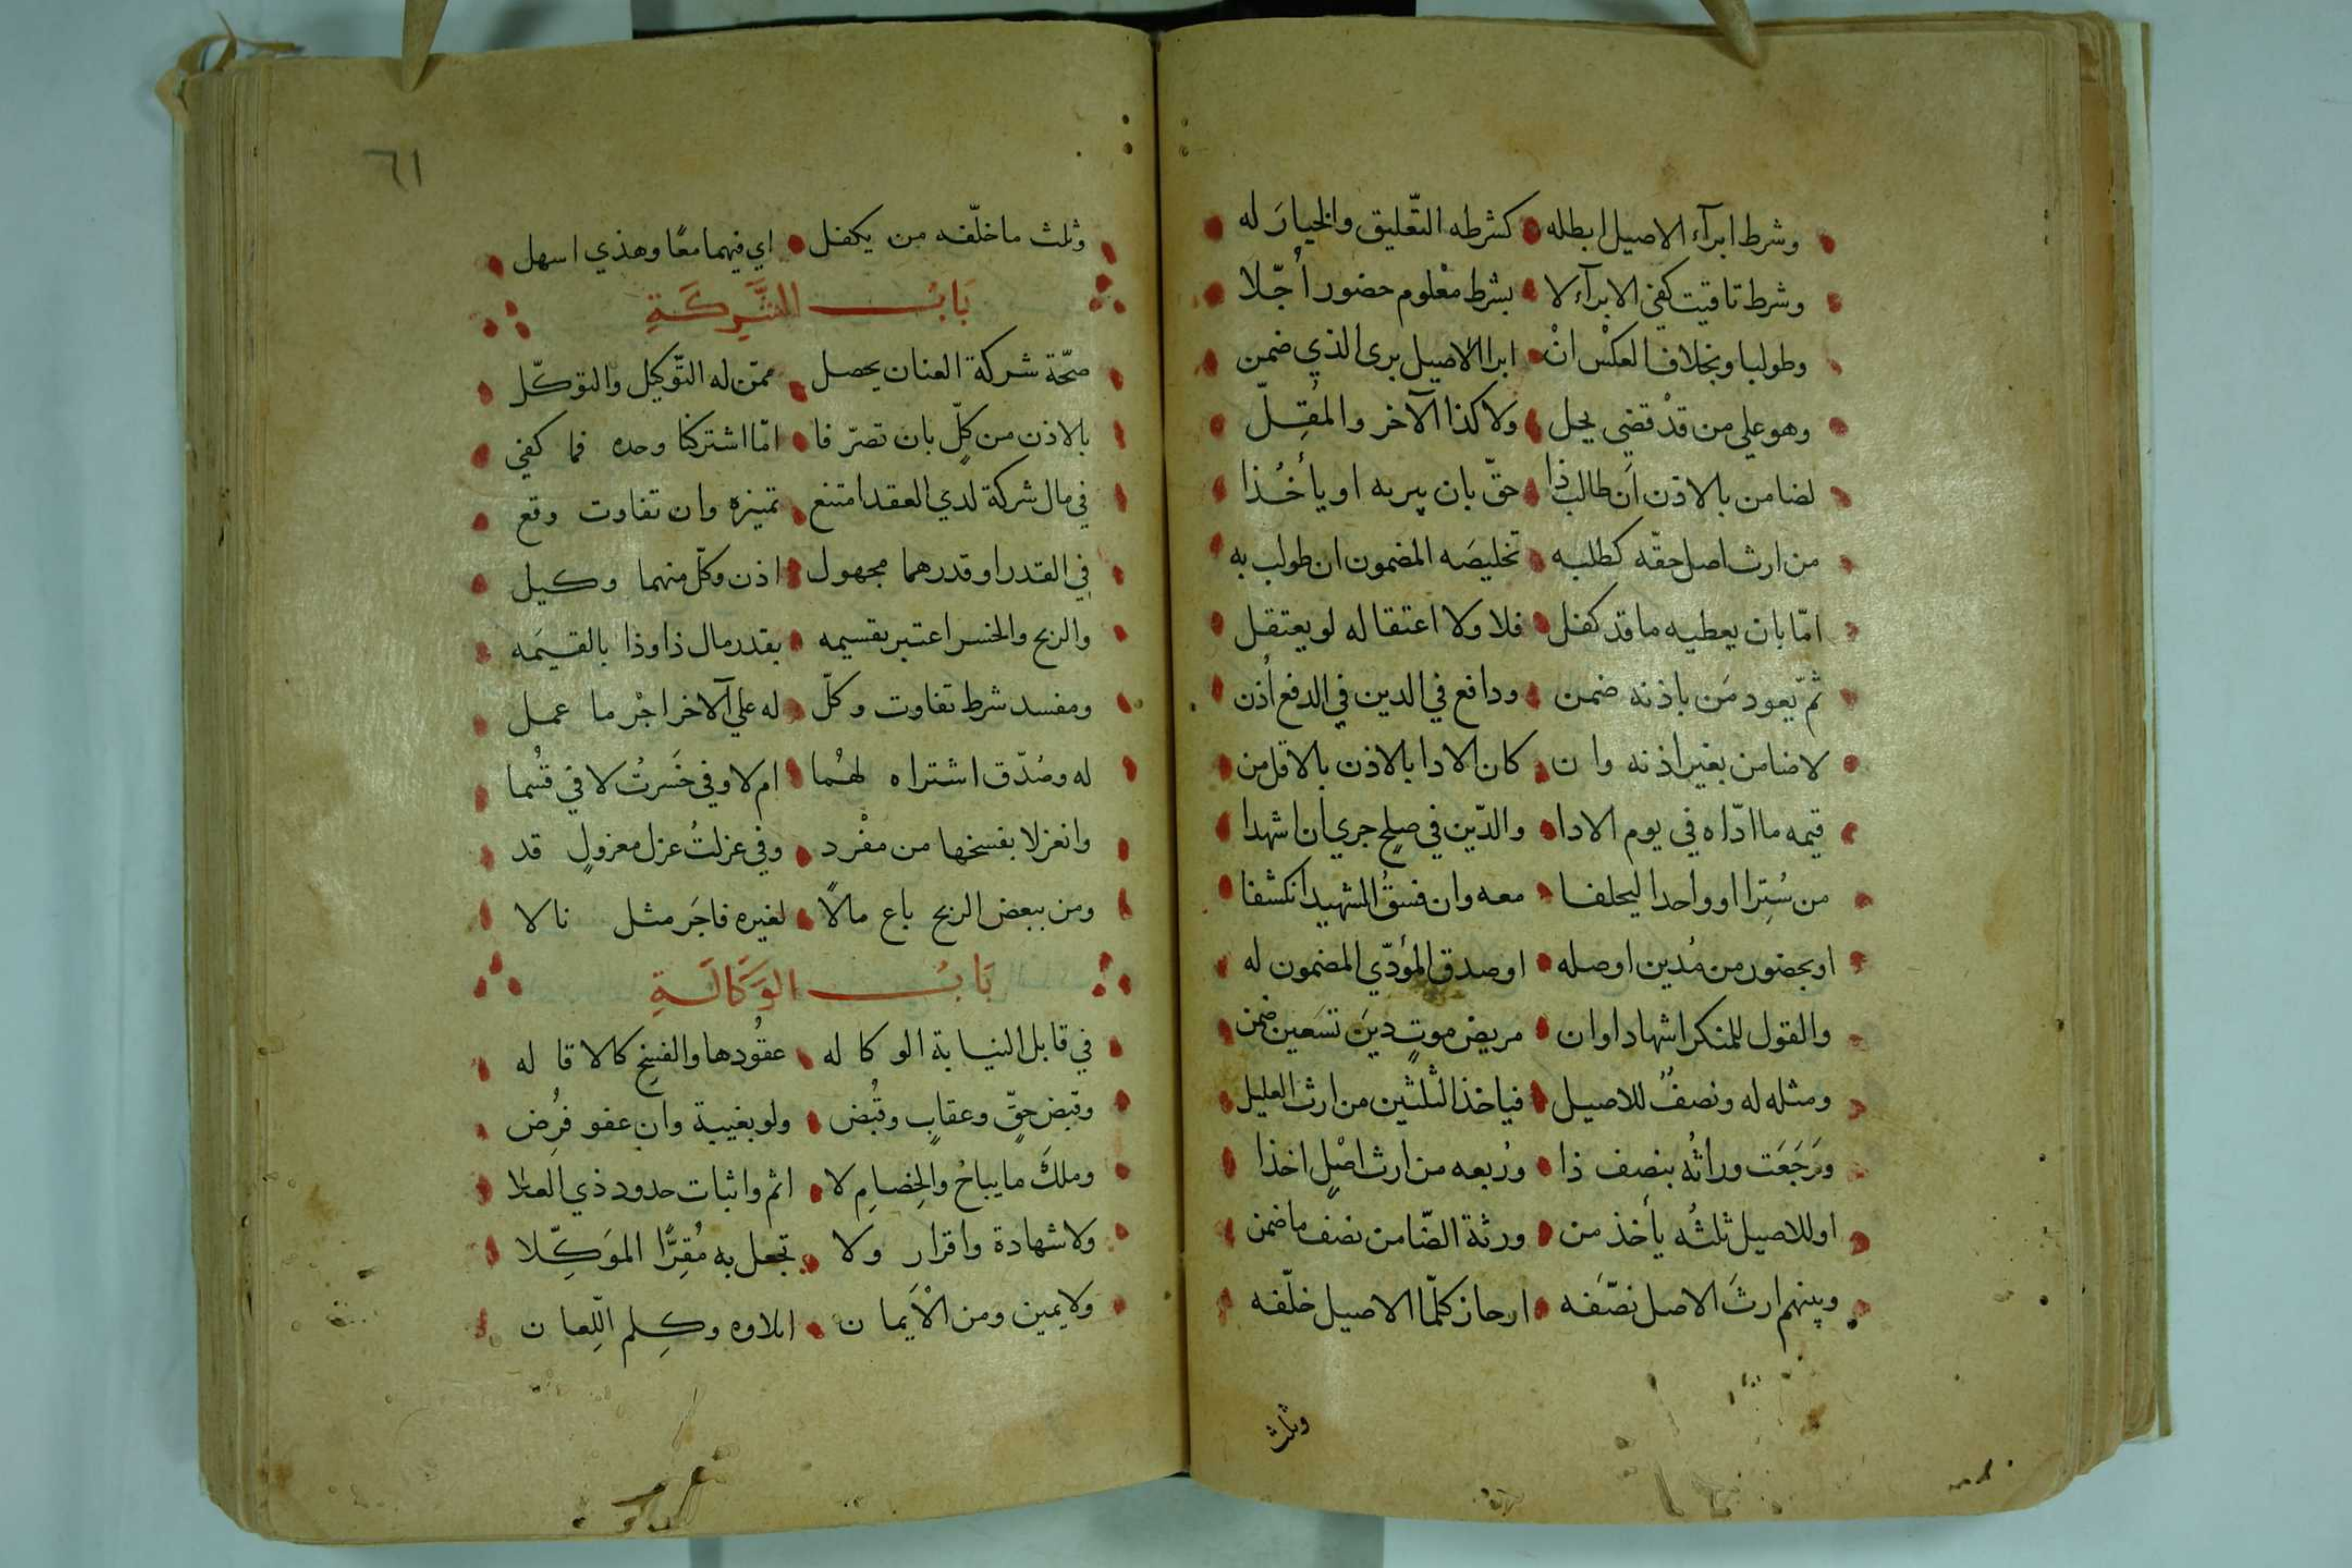 وشرط ابرآء الاصيل ابطله كشرطه التّعليق والخيارَ له
وشرط تاقيت كفى الابرآء لا بشرط معْلوم حضور أُجّلا
وطولبا وبخلاف العكْس انْ ابرا الاصيل برى الذي ضمن
وهو على من قدْ قضى يحل ولا كذا الآخر والمُقِلّ
لضامن بالاذن اَن طالب ذا حقّ بان يبريه او يأخُذا
من ارث اصل حقّه كطلبه تخليصَه المضمون ان طولب به
امّا بان يعطيه ما قد كفل فلا ولا اعتقاله لو يعتقل
ثمّ يعود مَن باذنه ضمن ودافع في الدين في الدفع اُذن
لا ضامن بغير اذنه وان كان الادا بالاذن بالاقل من
قيمه ما ادّاه في يوم الادا والدّين في صلح جرى ان اشهدا
من سُتِرا او واحدا ليحلفا معه وان فسقُ الشهيد انكشفا
او بحضور من مُدين اوصله او صدق المؤدّي المضمون له
والقول للمنكر اشهادا وان مريض موتٍ دينَ تسَعين ضمن
ومثله له ونصفٌ للاصيل فياخذ الثلثين من ارث العليل
ورَجَعَت وراثُه بنصف ذا ورُبعه من ارث اصْلٍ اخذا
او للاصيل ثلثُه يأخذ من ورثة الضّامن نصف ما ضمن
وبينهم ارثَ الاصل نصّفه ارحاز كلّما الاصيل خلّفه
وثلث
٦١
وثلث ما خلّفه من يكفل اي فيهما معًا وهذي اسهل
بَابُ الشَّرِكَةِ
صحّة شركة العنان يحصل ممّن له التّوكيل والتوكّل
بالاذن من كلٍّ بان تصرّفا امّا اشتركنا وحده فما كفى
في مال شركة لدي العقد امتنع تميزه وان تفاوت وقع
في القدر او قدرهما مجهول اذن وكلّ منهما وكيل
والربح والخسر اعتبر تقسيمه بقدر مال ذا وذا بالقيمَه
ومفسد شرط تفاوت وكلّ له على الآخر اجْر ما عمل
له وصُدّق اشتراه لهُما ام لا وفي خَسَرتُ لا في قُسما
وانعزلا بفسخها من مفْرد وفي عزلتُ عزل معزولٍ قد
ومن ببعض الربح باع مالاً لغيره فاجَر مثل نالا
بَابُ الوَكَالَةِ
في قابل النيابة الوكاله عقُودها والفسِخ كالاقاله
وقبض حقٍّ وعقابٍ وقُبض ولو بغيبة وان عفو فرُض
وملكَ ما يباحُ والخِصامِ لا اثم واثبات حدود ذي العلا
ولا شهادة واقرار ولا تجعل به مُقِرًّا الموَكِّلا
ولا يمين ومن الأَيمان ايلاوه وكِلم اللِّعان